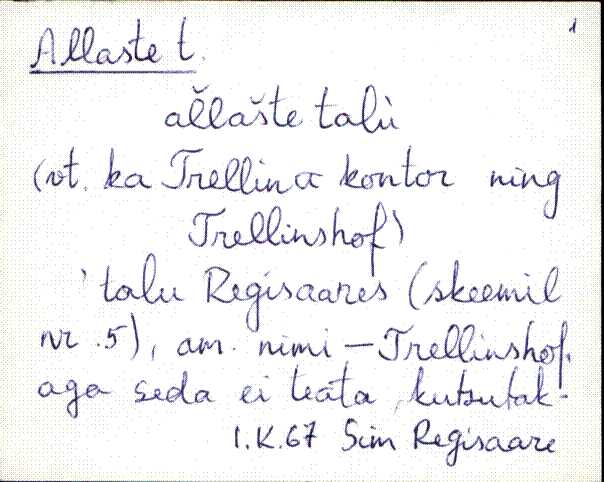 1
Allaste t.
älläšte talu
(vt. ka Trellina kontor ning
Trellinshof)
'talu Regisaares (skeemil
nr. 5), am. nimi – Trellinshof.
aga seda ei teata, kutsutak-
I.K.67 Sim Regisaare